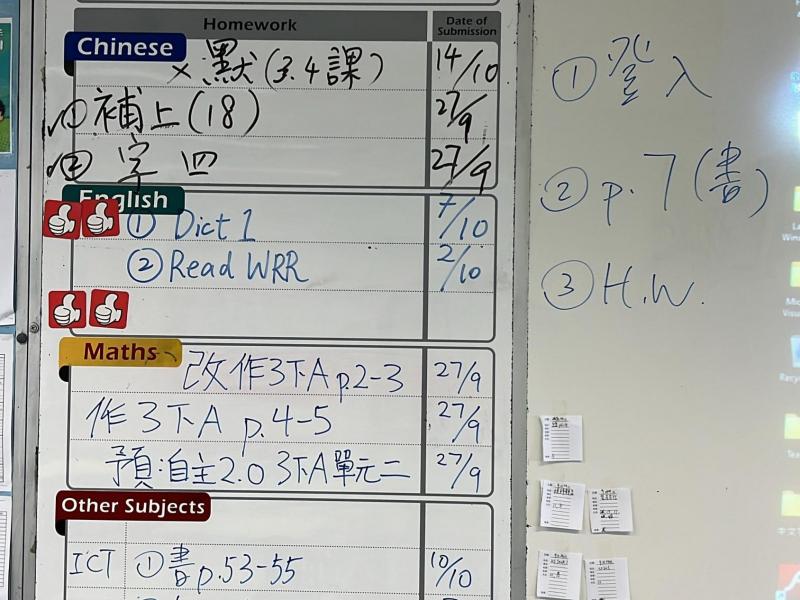 Homework Date of Submission
Chinese
× 默(3.4課) 14/10
① 補上(18) 27/9
② 字四 27/9
English
① Dict 1 7/10
② Read WRR 2/10
Maths
改作3下A p.2-3 27/9
作3下A p.4-5 27/9
預:自主2.0 3下A單元二 27/9
Other Subjects
ICT ①書p.53-55 10/10
① 登入
② p.7(書)
③ H.W.